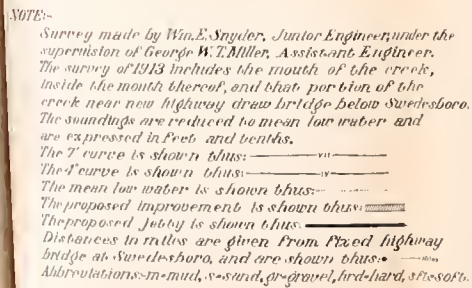 NOTE:-
Survey made by Wm.E.Snyder, Junior Engineer,under the
supervision of George W.T.Miller, Assistant Engineer.
The survey of 1913 includes the mouth of the creek,
Inside the mouth thereof, and that portion of the
creek near new highway draw bridge below Swedesboro.
The soundings are reduced to mean low water and
are expressed in feet and tenths.
The 7' curve is shown thus: VII
The 4' curve is shown thus: IV
The mean low water is shown thus:
The proposed improvement is shown thus:
The proposed jetty is shown thus:
Distances in miles are given from fixed highway
bridge at Swedesboro, and are shown thus:
Abbreviations:-m=mud, s=sand, gr=gravel, hrd=hard, sft=soft.